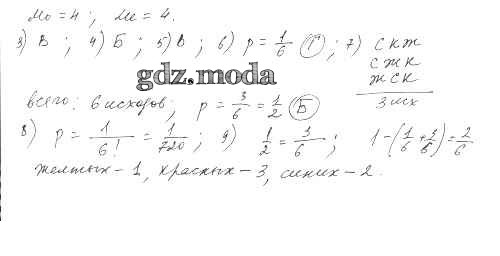 Mo = 4 ; Me = 4.
3) В ; 4) Б ; 5) В ; 6) p = 1/6 (Г) ; 7) С К Ж
С Ж К
gdz.moda
Ж С К
3 исх
всего: 6 исходов ; p = 3/6 = 1/2 (Б)
8) p = 1/6! = 1/720 ; 9) 1/2 = 3/6 ; 1 - (1/6 + 3/6) = 2/6
желтых - 1, красных - 3, синих - 2.